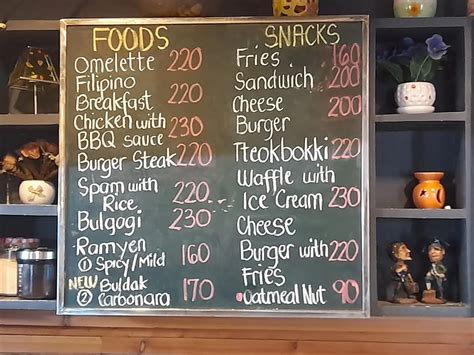 FOODS
Omelette 220
Filipino
Breakfast 220
Chicken with
BBQ sauce 230
Burger Steak 220
Spam with
Rice 220
Bulgogi 230
Ramyen 160
① Spicy/Mild
NEW
② Buldak
Carbonara 170
SNACKS
Fries 160
Sandwich 200
Cheese
Burger 200
Tteokbokki 220
Waffle with
Ice Cream 230
Cheese
Burger with 220
Fries
Oatmeal Nut 90